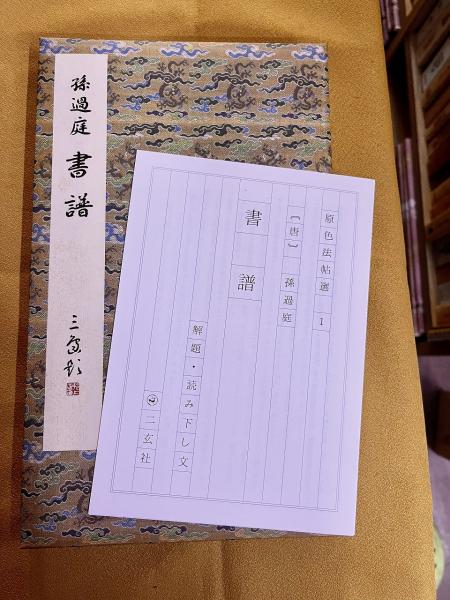 孫過庭 書譜
原色法帖選 1
〔唐〕 孫過庭
書譜
解題・読み下し文
二玄社